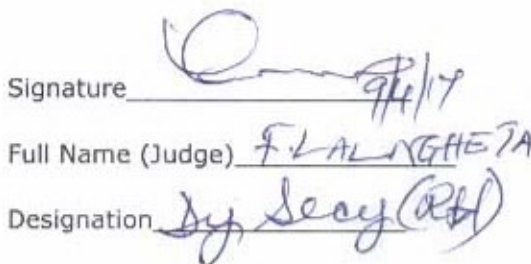 Signature 9/4/17
Full Name (Judge) F. LALNGHETA
Designation Dy Secy